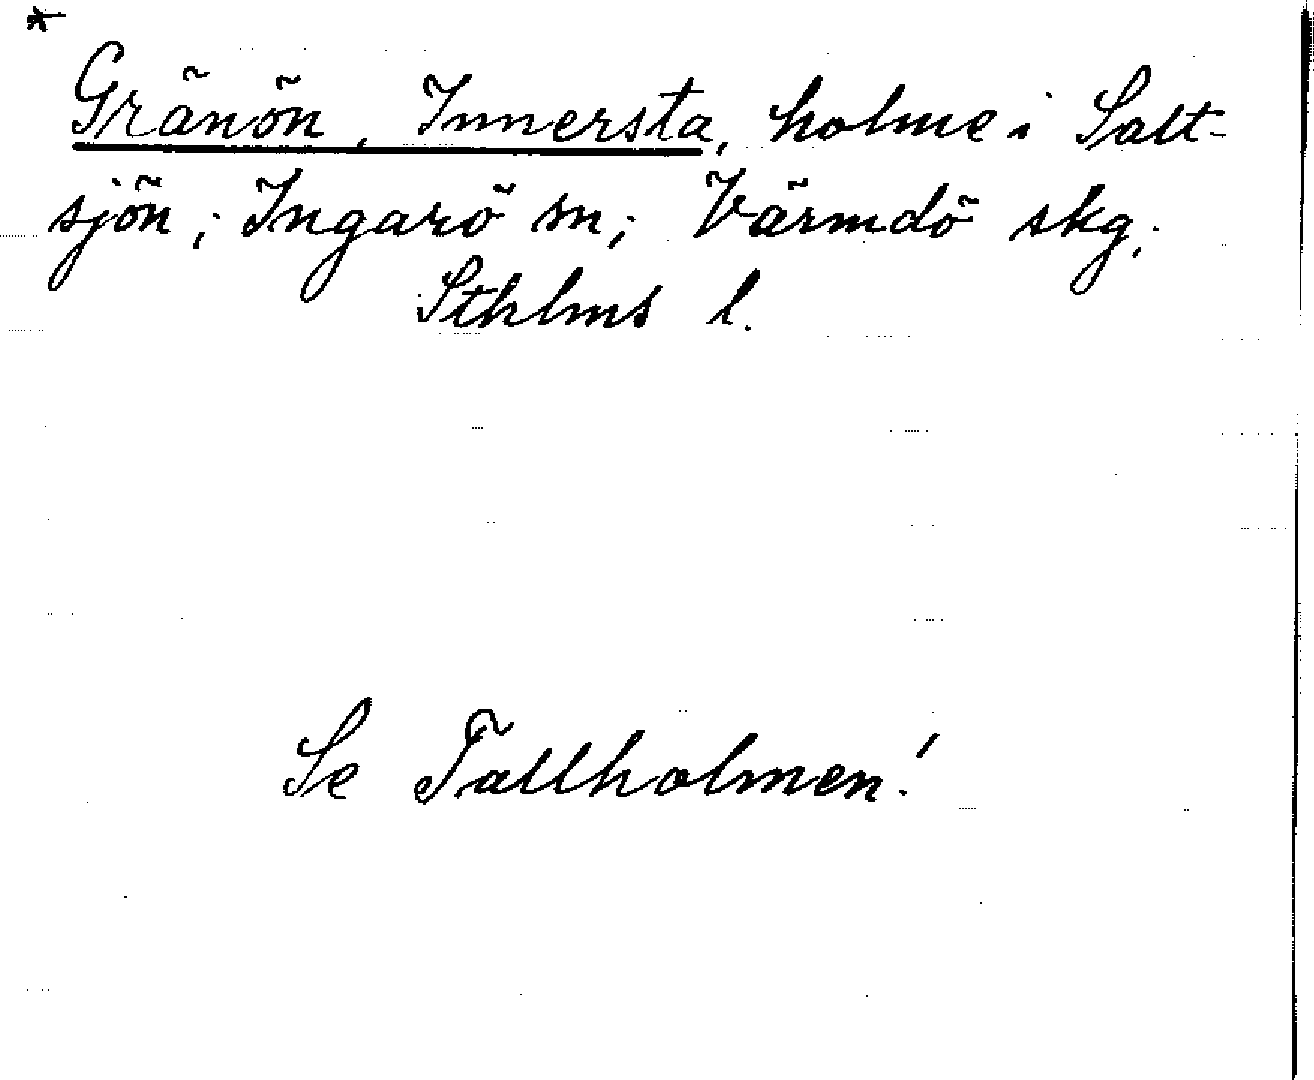 *
Gränön, Innersta, holme i Salt-
sjön; Ingarö sn; Värmdö skg;
Sthlms l.
Se Tallholmen!